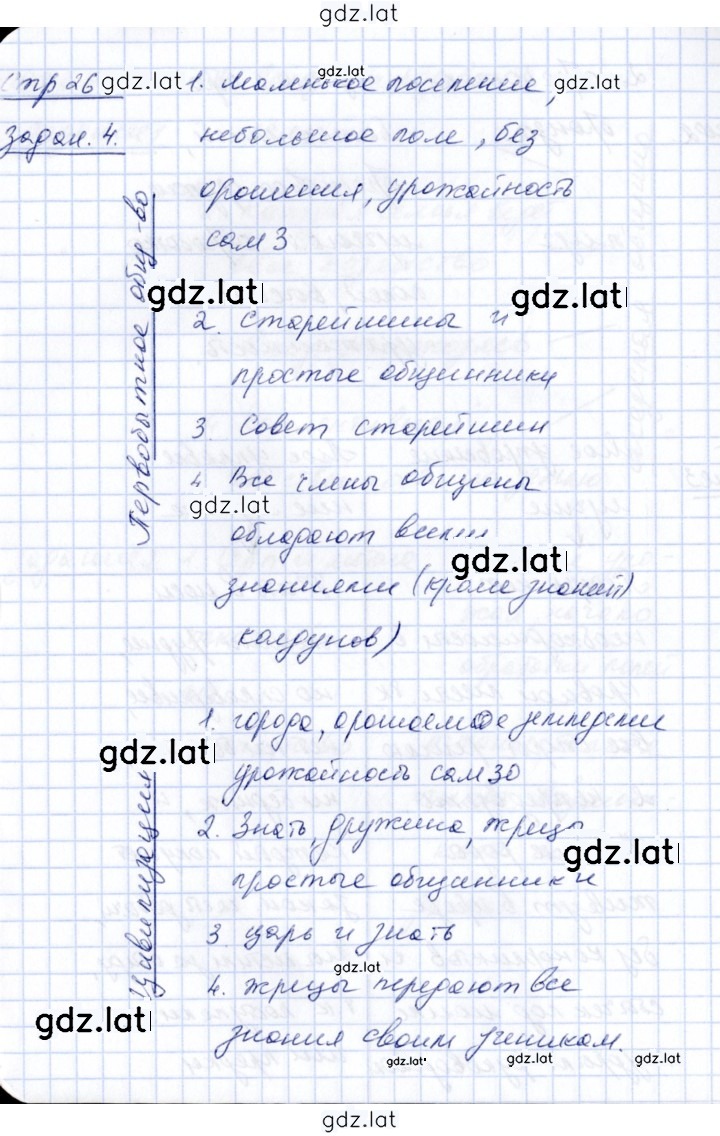 gdz.lat
Стр 26 gdz.lat 1. Маленькое поселение, gdz.lat
gdz.lat
Задан. 4. небольшое поле, без
орошения, урожайность
сам 3
Первобытное общ-во
gdz.lat gdz.lat
2. Старейшины и
простые общинники
3. Совет старейшин
4 Все члены общины
gdz.lat
обладают всеми
gdz.lat
знаниями (кроме знаний
колдунов)
Цивилизация
1. города, орошаемое земледелие
gdz.lat
урожайность сам 30
2. Знать, дружина, жрецы
gdz.lat
простые общинники
3. царь и знать
gdz.lat
4. жрецы передают все
gdz.lat
знания своим ученикам.
gdz.lat gdz.lat gdz.lat
gdz.lat